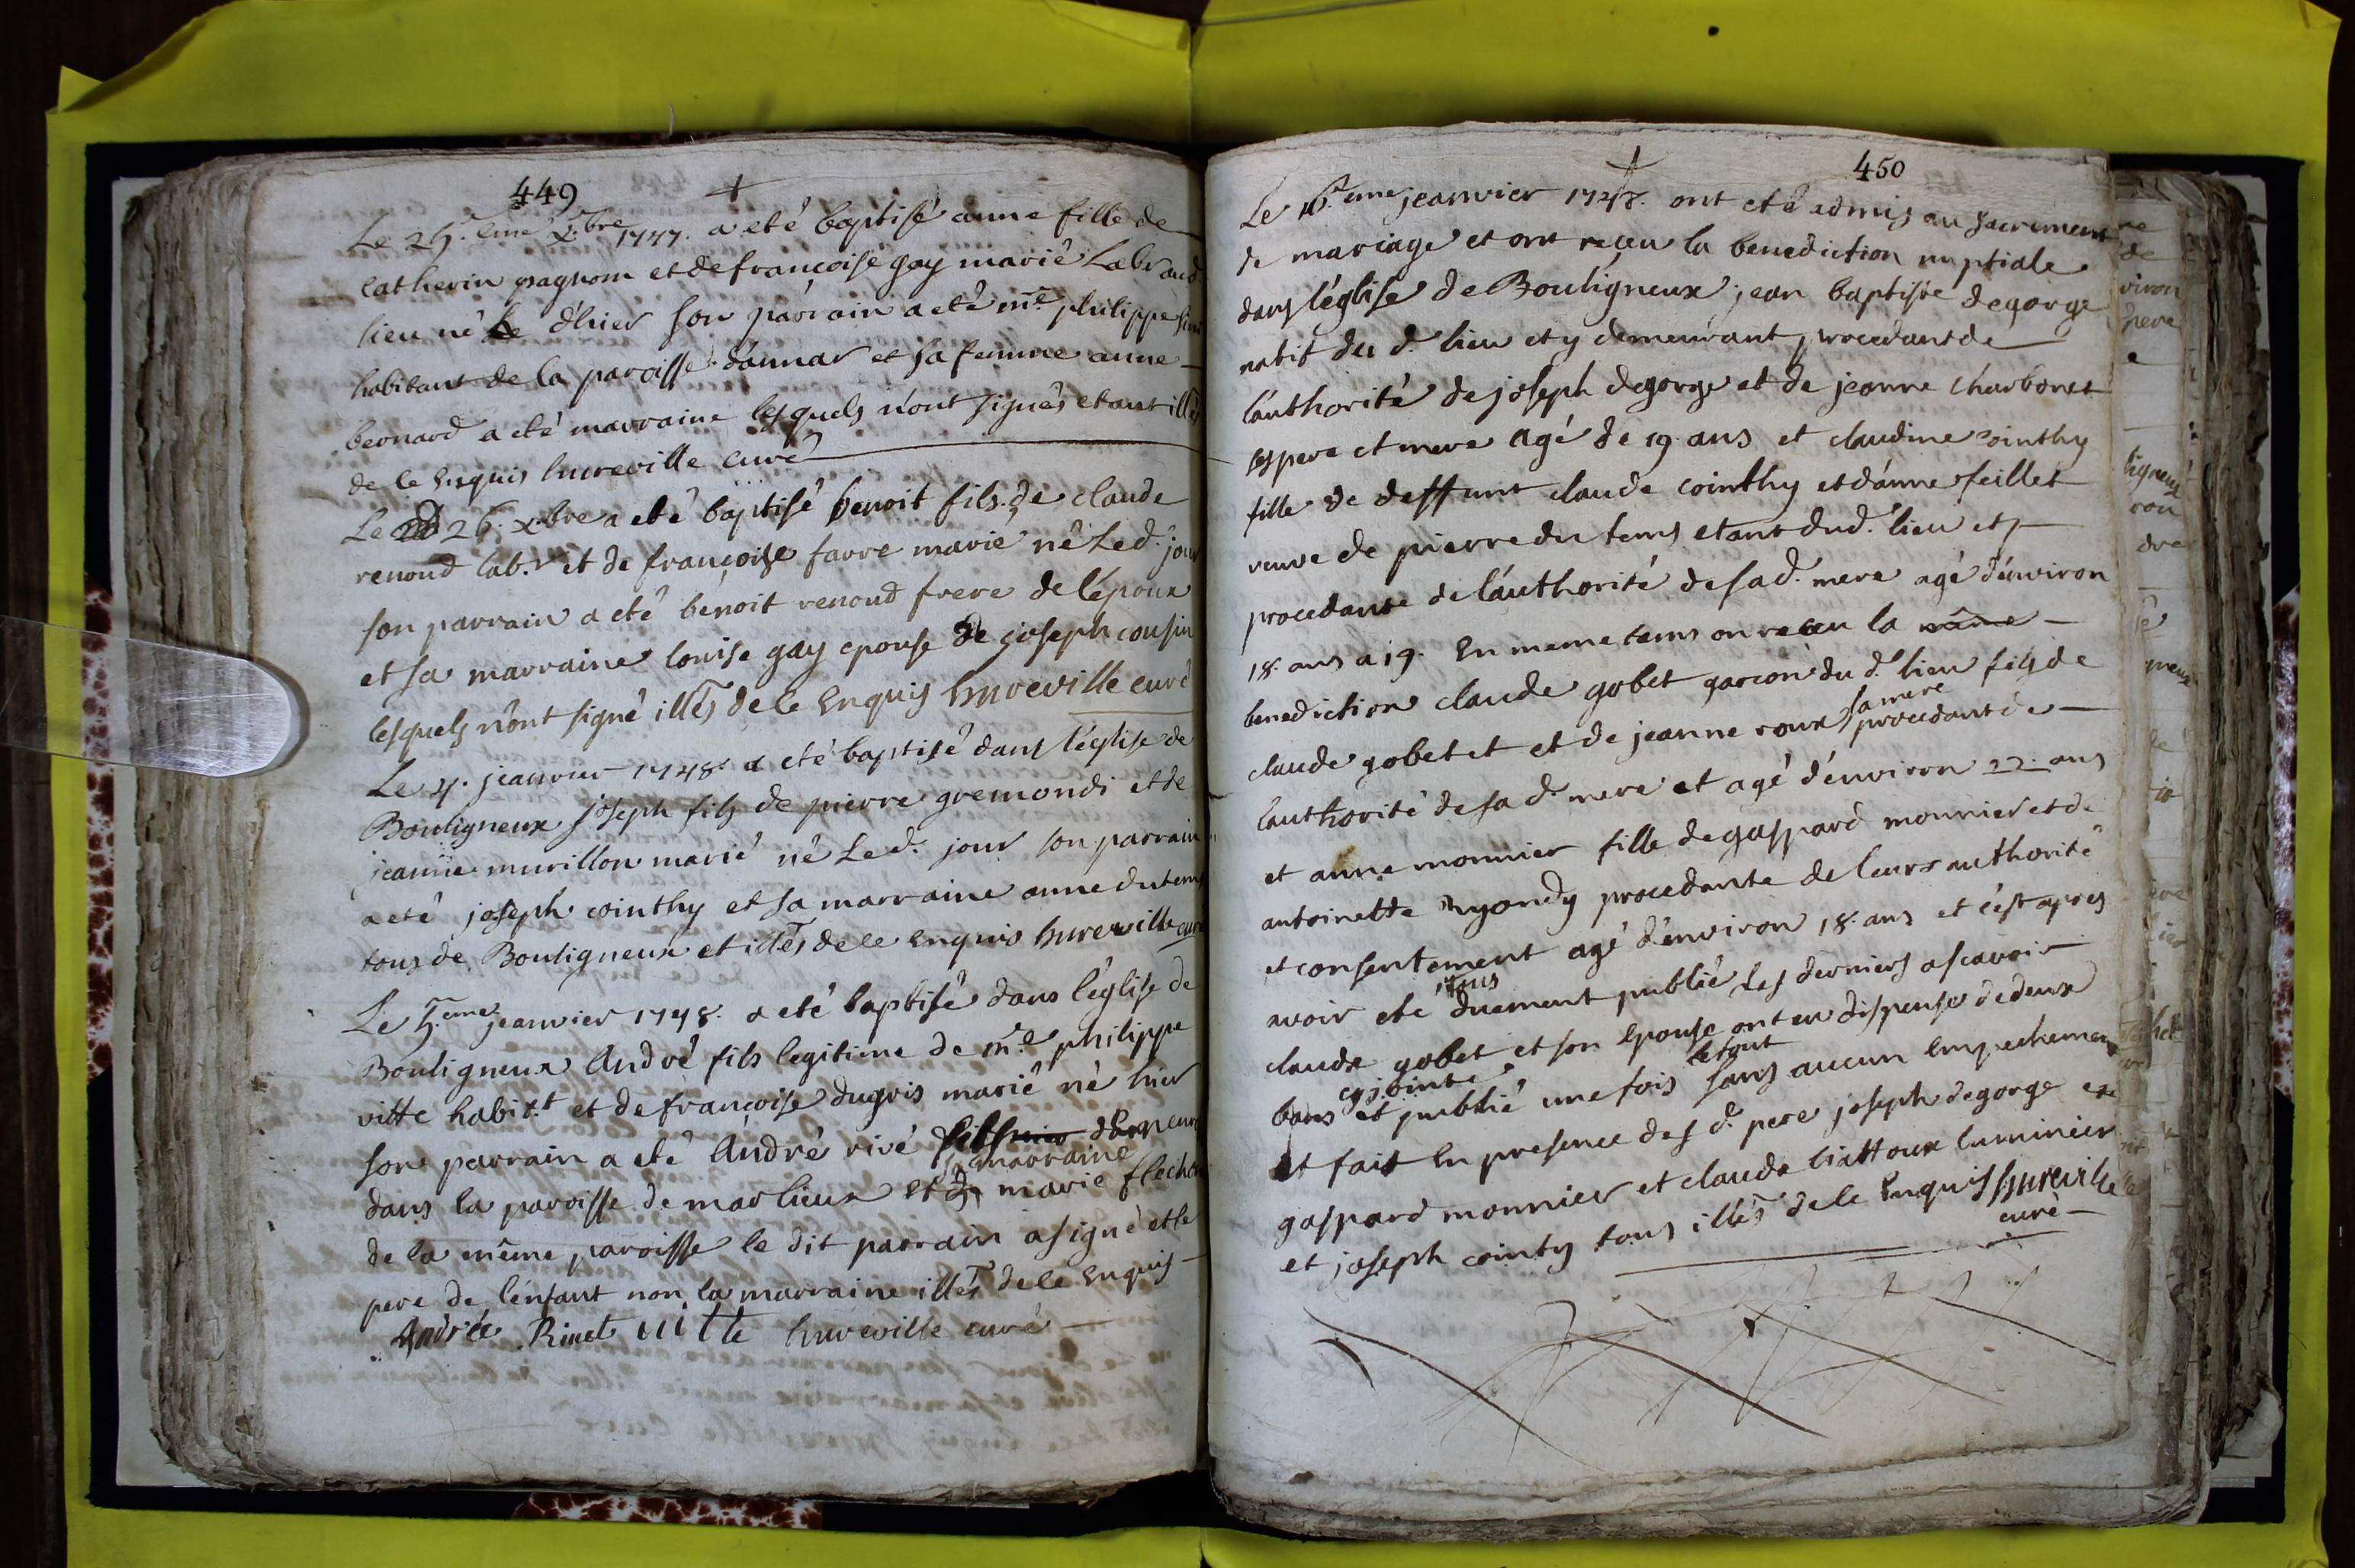 449
Le 25.eme x.bre 1747. a eté baptisé anne fille de
catherin pagnom et de françoise gay marié
lieu né d'hier son parrain a eté m.e philippe
habitant de la paroisse d'annar et sa femme anne
bernard a eté marraine lesquels n'ont signés etant illés
de le Enquis hureville curé
Le 26. x.bre a eté baptisé benoit fils de claude
renoud lab.r et de françoise favre marié né Le d. jour
son parrain a eté benoit renoud frere de l'époux
et sa marraine louise gay epouse de joseph cousin
lesquels n'ont signé illés de le Enquis hureville curé
Le 4. jeanvier 1748. a eté baptisé dans l'église de
Bouligneux joseph fils de pierre gremondi et de
jeanne murillon marié né Le d. jour son parrain
a eté joseph cointhy et sa marraine anne dutems
tous de Bouligneux et illés de le Enquis hureville curé
Le 5.eme jeanvier 1748. a eté baptisé dans l'église de
Bouligneux André fils legitime de m.e philippe
vitte habit.t et de françoise dugris marié né hier
son parrain a eté André rivé
dans la paroisse de marlieux et sa marraine marie flechon
de la même paroisse le dit parrain a signé et le
pere de l'enfant non la marraine illés de le Enquis
Andrée Rivet vitte hureville curé
450
Le 16.eme jeanvier 1748. ont eté admis au sacrement
de mariage et ont reçeu la benediction nuptiale
dans l'église de Bouligneux jean baptiste degorge
natif du d. lieu et y demeurant procedant de
l'authorité de joseph degorge et de jeanne charbonet
ses pere et mere agé de 19. ans et claudine cointhy
fille de deffunt claude cointhy et d'anne feillet
veuve de pierre du tems etant dud. lieu et
procedante de l'authorité de sa d. mere agé d'environ
18. ans a 19. En meme tems on reçeu la même
benediction claude gobet garçon du d. lieu fils de
claude gobet et et de jeanne roux sa mere procedant de
l'authorité de sa d. mere et agé d'environ 22. ans
et anne monnier fille de gaspard monnier et de
antoinette procedante de leurs authorité
et consentement agé d'environ 18. ans et c'est apres
avoir eté tous duement publié les derniers a scavoir
claude gobet et son Epouse ont eu dispense de deux
bans cy jointe et publié une fois le tout sans aucun Empechement
et fait En presence des d. pere joseph degorge et
gaspard monnier et claude liattoux luminier
et joseph cointy tous illés de le Enquis hureville
curé